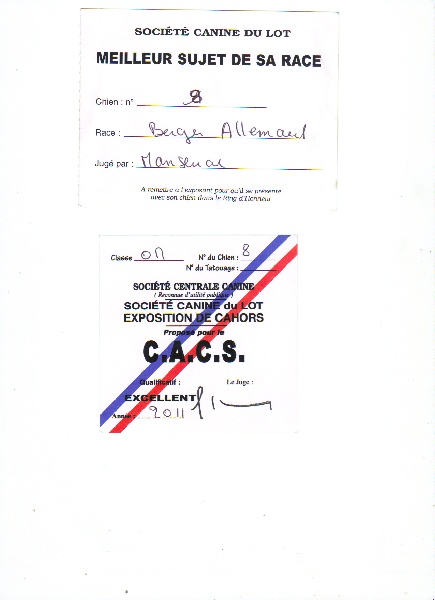 SOCIÉTÉ CANINE DU LOT
MEILLEUR SUJET DE SA RACE
Chien : n° 8
Race : Berger Allemand
Jugé par :
A remettre à l'exposant pour qu'il se présente
avec son chien dans le Ring d'Honneur
Classe N° du Chien : 8
N° du Tatouage :
SOCIÉTÉ CENTRALE CANINE
( Reconnue d'utilité publique )
SOCIÉTÉ CANINE du LOT
EXPOSITION DE CAHORS
Proposé pour le
C.A.C.S.
Qualificatif : Le Juge :
EXCELLENT
Année : 2011